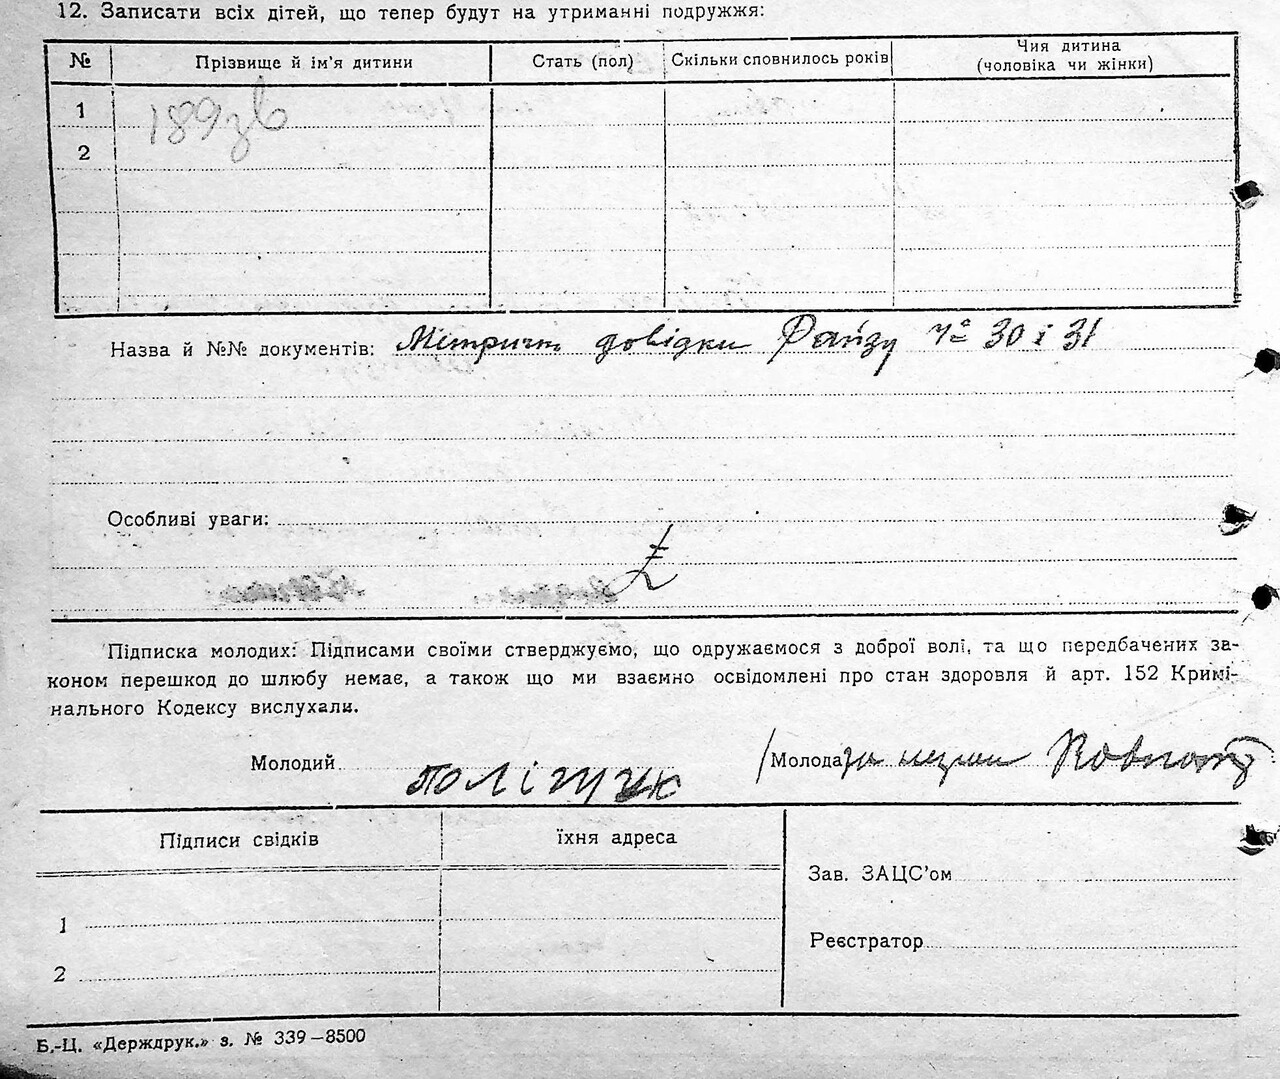 12. Записати всіх дітей, що тепер будут на утриманні подружжя:
№ Прізвище й ім'я дитини Стать (пол) Скільки сповнилось років Чия дитина (чоловіка чи жінки)
1 189зв
2
Назва й №№ документів: Метричн довідки Райзу № 30 і 31
Особливі уваги:
Z
Підписка молодих: Підписами своїми стверджуємо, що одружаємося з доброї волі, та що передбачених за-
коном перешкод до шлюбу немає, а також що ми взаємно освідомлені про стан здоровля й арт. 152 Кримі-
нального Кодексу вислухали.
Молодий Поліщук Молода за
Підписи свідків їхня адреса
Зав. ЗАЦС'ом
1
Реєстратор
2
Б.-Ц. «Держдрук.» з. № 339-8500